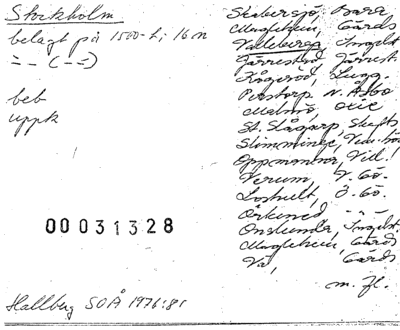 Stockholm
belagt på 1500-t; 16 n
=- (--)
beb
uppk
00031328
Hallberg SOÅ 1976:81
Skabersjö, Bara
Maglehem, Gärds
Valleberga, Ingelst.
Järrestad, Järrest.
Kågeröd, Lugg.
Perstorp N. Åsbo
Malmö, Oxie
St. Slågarp, Skytts
Slimminge, Vem.hög
Oppmanna, Vill.
Verum, V. Gö.
Loshult, Ö. Gö.
Örkened -"-
Onslunda, Ingelst.
Maglehem, Gärds
Vä, Gärds
m. fl.